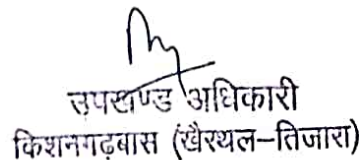 उपखण्ड अधिकारी
किशनगढ़बास (खैरथल-तिजारा)